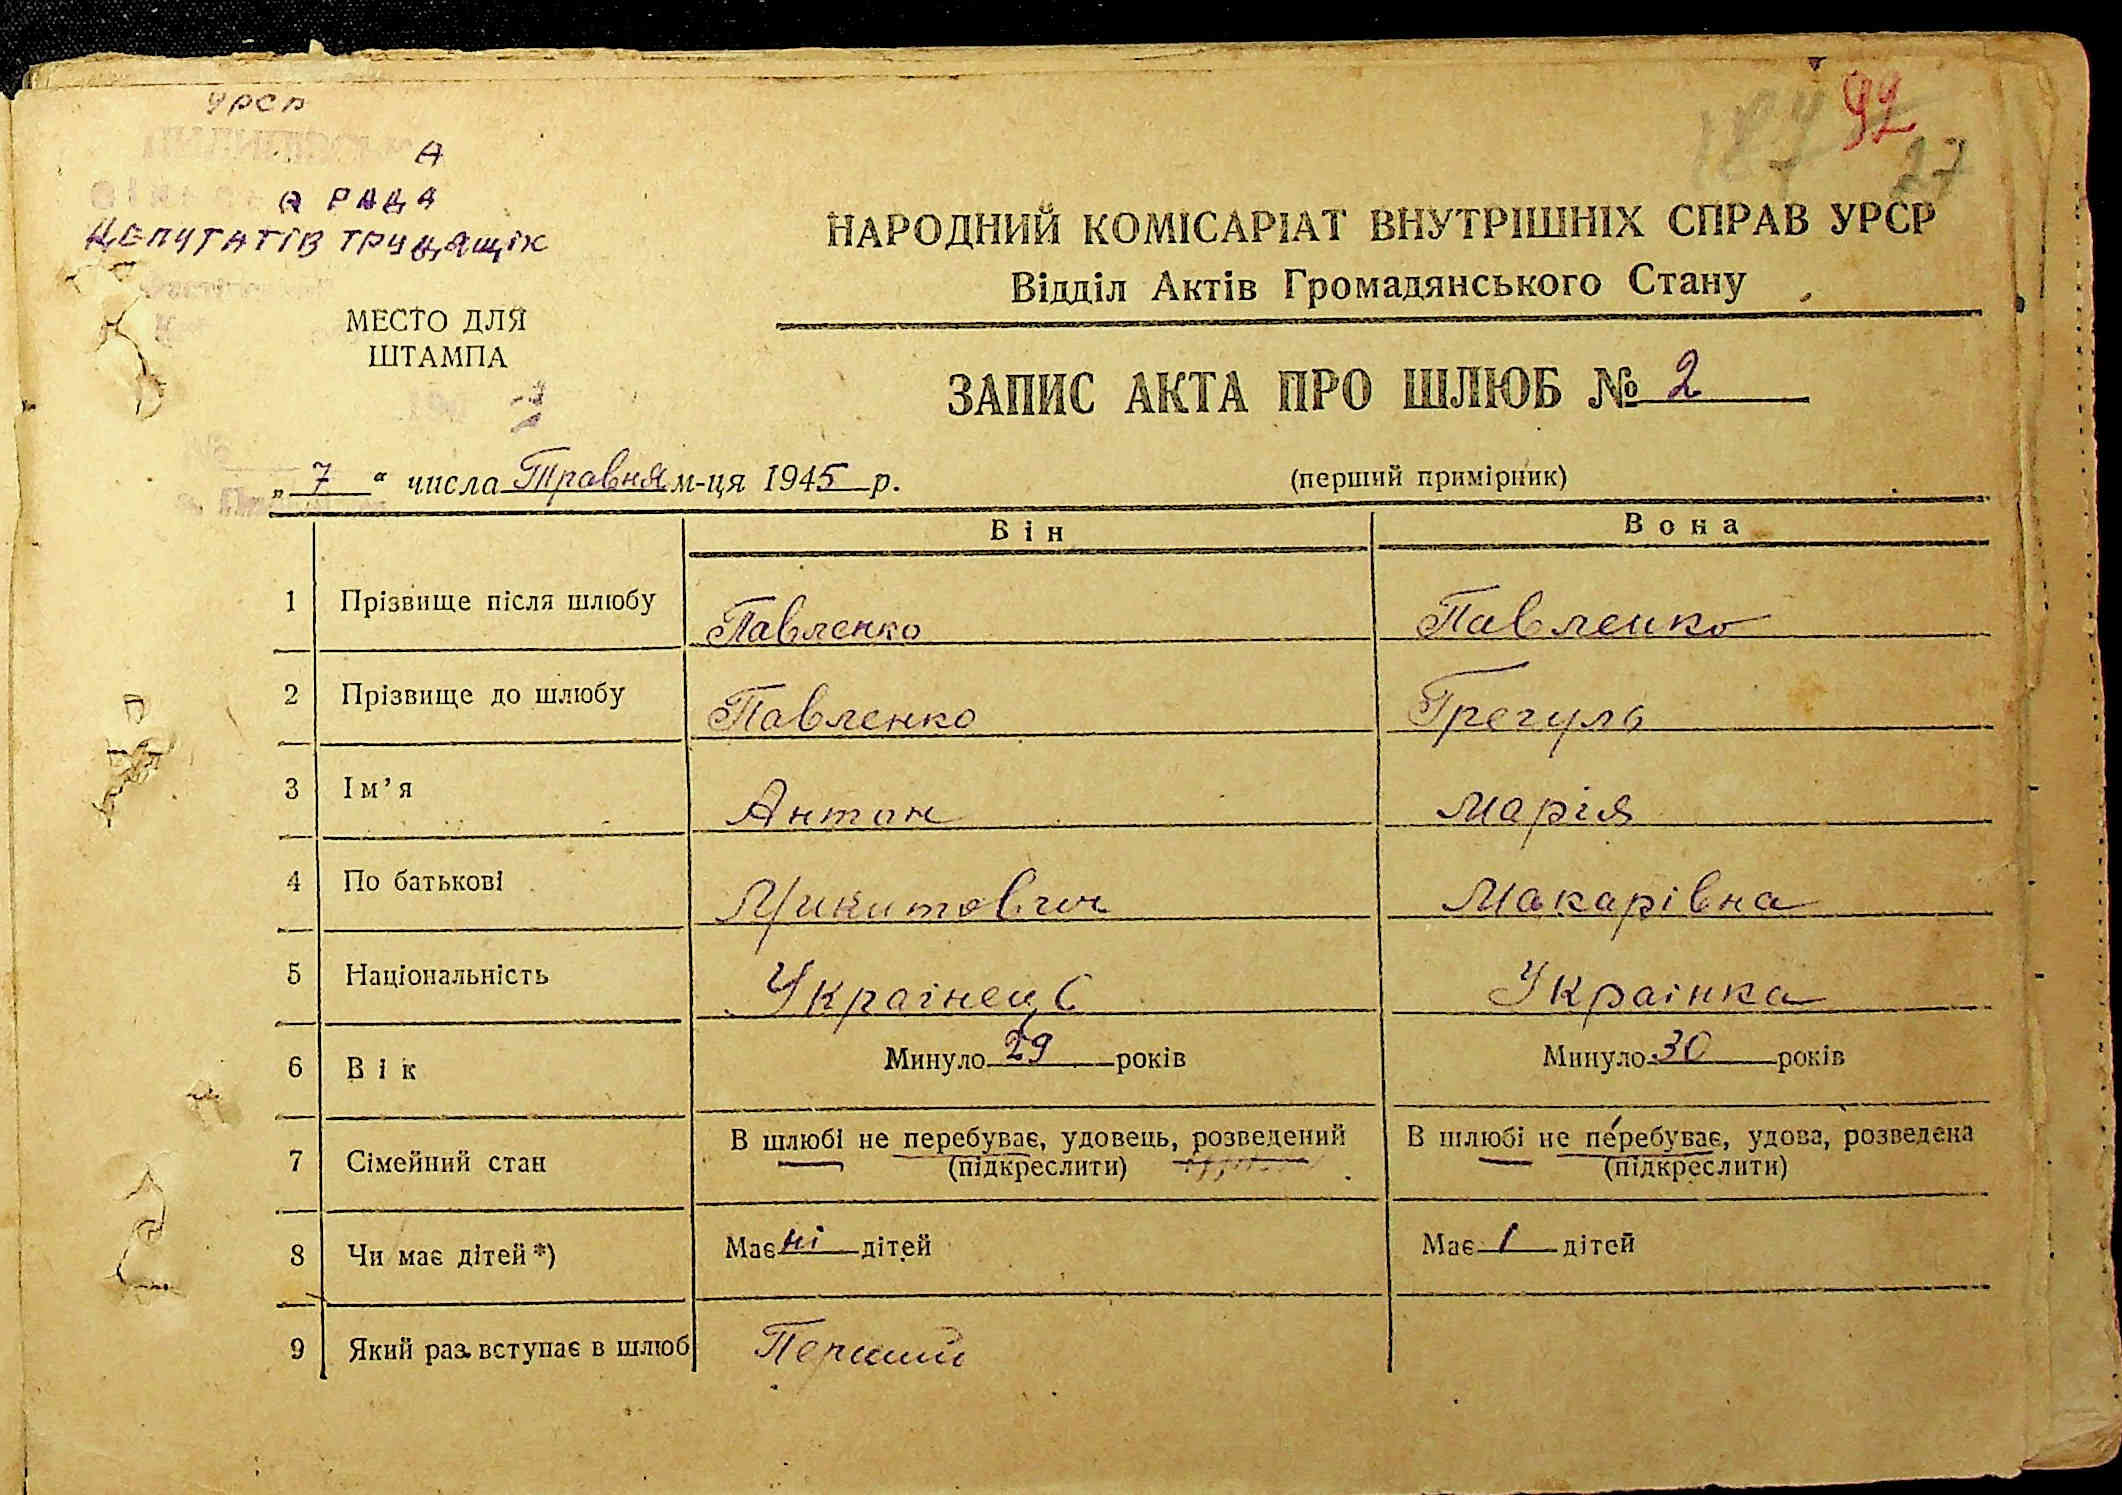 УРСР
А
А РАДА
ДЕПУТАТІВ ТРУДЯЩІХ
МЕСТО ДЛЯ
ШТАМПА
92
187
27
НАРОДНИЙ КОМІСАРІАТ ВНУТРІШНІХ СПРАВ УРСР
Відділ Актів Громадянського Стану
ЗАПИС АКТА ПРО ШЛЮБ № 2
„ 7 “ числа Травня м-ця 1945 р.
(перший примірник)
Він Вона
1 Прізвище після шлюбу Павленко Павленко
2 Прізвище до шлюбу Павленко Грегуль
3 Ім’я Антон Марія
4 По батькові Микитович Макарівна
5 Національність Українец Українка
6 Вік Минуло 29 років Минуло 30 років
7 Сімейний стан В шлюбі не перебуває, удовець, розведений В шлюбі не перебуває, удова, розведена
(підкреслити) (підкреслити)
8 Чи має дітей*) Має ні дітей Має 1 дітей
9 Який раз вступає в шлюб Перший